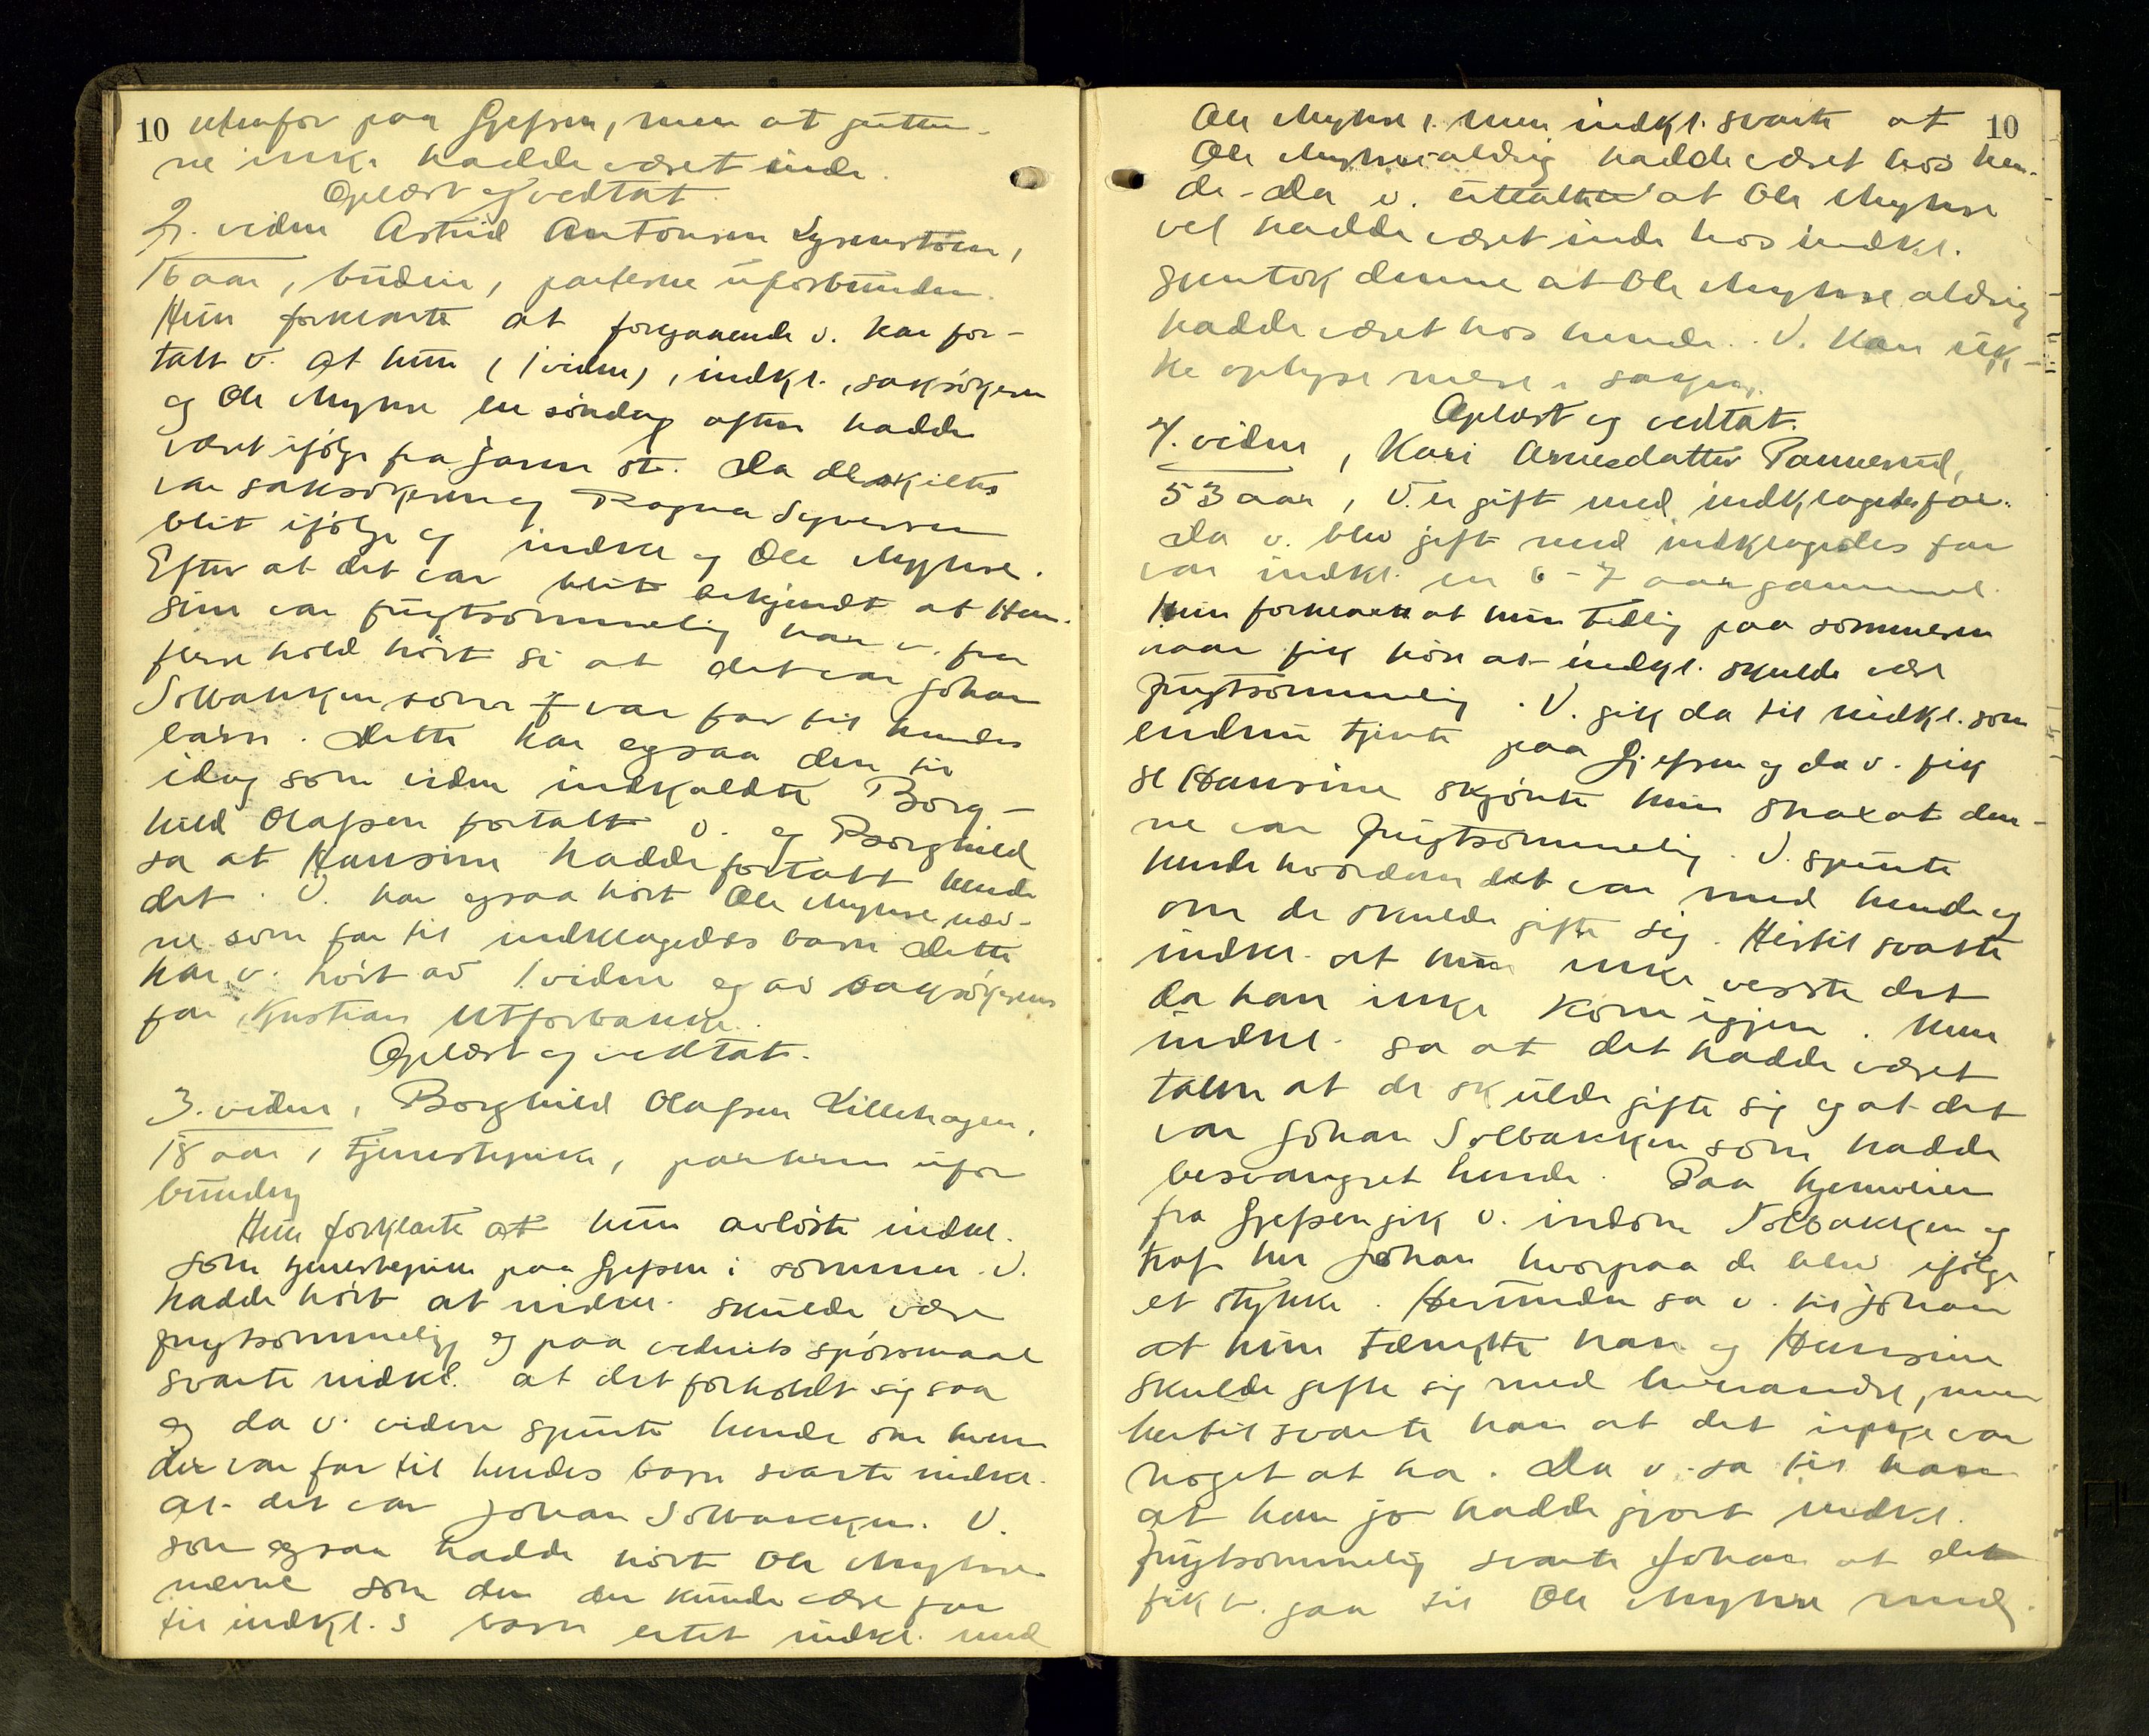 10 utenfor paa Gjefsen, men at gutte-
ne ikke hadde været inde.
Oplæst og vedtat.
2. vidne Astrid Antonsen Lysenstøen,
16 aar, budeie, parterne uforbunden.
Hun forklarte at foregaaende v. har for-
talt v. at hun (1 vidne), indkl., saksökeren
og Ole Myhre en söndag aften hadde
været ifölge fra Jaren st. Da de skiltes
var saksökeren og Ragna Syversen
blit ifölge og indkl. og Ole Myhre.
Efter at det var blit bekjendt at Han-
sine var frugtsommelig har v. fra
flere hold hört si at det var Johan
Solbakken som var far til hendes
barn. Dette har ogsaa den til
idag som vidne indkaldte Borg-
hild Olafsen fortalt v. og Borghild
sa at Hansine hadde fortalt hende
det. V. har ogsaa hört Ole Myhre næv-
ne som far til indklagedes barn dette
har v. hört av 1 vidne og av saksökerens
far Kristian
Oplæst og vedtat.
3. vidne, Borghild Olafsen Lillehagen,
18 aar, tjenestepike, parterne ufor
bunden
Hun forklarte at hun avlöste indkl.
som tjenestepike paa Gjefsen i sommer. V.
hadde hört at indkl. skulde være
frugtsommelig og paa vidnets spörsmaal
svarte indkl. at det forholdt sig saa
og da v. videre spurte hende om hvem
der var far til hendes barn svarte indkl.
at det var Johan Solbakken. V.
som ogsaa hadde hört Ole Myhre
nævne som den der kunde være far
til indkl.s barn ertet indkl. med
Ole Myhre, men indkl. svarte at 10
Ole Myhre aldrig hadde været hos hen-
de. Da v. uttalte at Ole Myhre
vel hadde været inde hos indkl.
gjentok denne at Ole Myhre aldrig
hadde været hos hende. V. kan ik-
ke oplyse mere i saken.
Oplæst og vedtat.
4. vidne, Kari Arnesdatter Pannerud,
53 aar, V. er gift med indklagedes far.
Da v. blev gift med indklagedes far
var indkl. en 6-7 aar gammel.
Hun forklarte at hun tidlig paa sommeren
iaar fik höre at indkl. skulde være
frugtsommelig. V. gik da til indkl. som
endnu tjente paa Gjefsen og da v. fik
se Hansine skjönte hun straxat den-
ne var frugtsommelig. V. spurte
hende hvordan det var med hende og
om de skulde gifte sig. Hertil svarte
indkl. at hun ikke visste det
da han ikke kom igjen. Men
indkl. sa at det hadde været
talen at de skulde gifte sig og at det
var Johan Solbakken som hadde
besvangret hende. Paa hjemveien
fra Gjefsen gik v. indom Solbakken og
traf her Johan hvorpaa de blev ifölge
et stykke. Herunder sa v. til Johan
at hun tænkte han og Hansine
skulde gifte sig med hverandre, men
hertil svarte han at det ikke var
noget at ha. Da v. sa til ham
at han jo hadde gjort indkl.
frugtsommelig svarte Johan at det
fik v. gaa til Ole Myhre med.